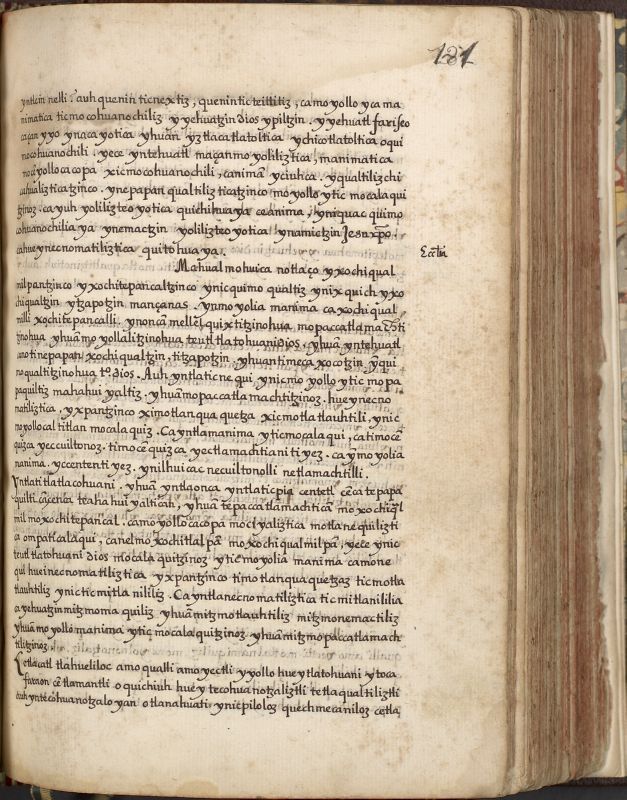 181
yntlein nelli? auh quenin ticnextiz, quenin tic teittitiz, ca mo yollo yca ma
nimatica ticmo cohuanochiliz y yehuatzin dios ypiltzin. y yehuatl fariseo
ca çan y yo ynacayotica yhuan yztlacatlatoltica ychicotlatoltica oqui
mocohuanochili. yece yntehuatl maçanmo yoliliztica, manimatica
mo yollocacopa xicmocohuanochili, canima yciuhca. yqualtilizchi
cahualizticatzinco. ynepapan qualtilizticatzinco mo yollo ytic mocalaqui
tzinoz. ca yuh yolilizteoyotica quichihuaya ceanima, yniquac quimo
cohuanochiliaya ynemactzin yolilizteoyotica ynamictzin Jesu xpo.
cahueynecnomatiliztica quitohuaya.
Ma hualmohuica notlaço yxochiqual
milpantzinco yxochitepancaltzinco ynic quimo qualtiz ynixquich yxo
chiqualtzin ytzapotzin mançanas. ynmo yolia manima ca xochiqual
milli xochitepancalli. ynoncan mellelquixtitzinohua mopaccatlamachti
tzinohua yhuan moyollalitzinohua teutl tlatohuani dios, yhuan yntehuatl
ynepapan xochiqualtzin, titzapotzin, yhuan timecaxocotzin, yn qui
moqualtitzinohua to. dios. Auh yntlaticnequi ynicmo yollo ytic mopa
paquiltiz mahahuiyaltiz. yhuan mopaccatlamachtitzinoz. huey necno
matiliztica, yxpantzinco ximotlanquaquetza xicmotlatlauhtili, ynic
moyollocaltitlan mocalaquiz. Ca yntlamanima yticmocalaqui, catimocen
quizca yeccuiltonoz. timocenquizca yectlamachtiani tiyez. ca ynmo yolia
manima. yccententi yez. ynilhuicac necuiltonolli netlamachtilli.
Yntlatitlatlacohuani. yhuan yntlaonca yntlaticpia centetl
quilti teahahuiyaltican, yhuan tepaccatlamachtican mo xochiqual
mil mo xochitepancal. camo yollocacopa moctyaliztica motlanequilizti
ca ompaticalaqui, canelmo xochitlalpan mo xochiqualmilpan, yece ynic
teutl tlatohuani dios mocalaquitzinoz yticmo yolia manima camone
qui hueinecnomatiliztica yxpantzinco timotlanquaquetzaz ticmotla
tlauhtiliz ynic ticmitlanililiz. Ca yntlanecnomatiliztica ticmitlanililia
ca yehuatzin mitzmomaquiliz yhuan mitzmotlauhtiliz mitzmonemactiliz
yhuan mo yollo manima ytic mocalaquitzinoz yhuan mitzmopaccatlamach
tilitzinoz.
Cetlacatl tlahueliloc amo qualli amo yectli yyollo huey tlatohuani ytoca
faraon centlamantli oquichiuh huey tecohuanotzaliztli tetlaqualtiliztli
auh yntecohuanotzaloyan otlanahuati ynic piloloz quechmecaniloz cetla